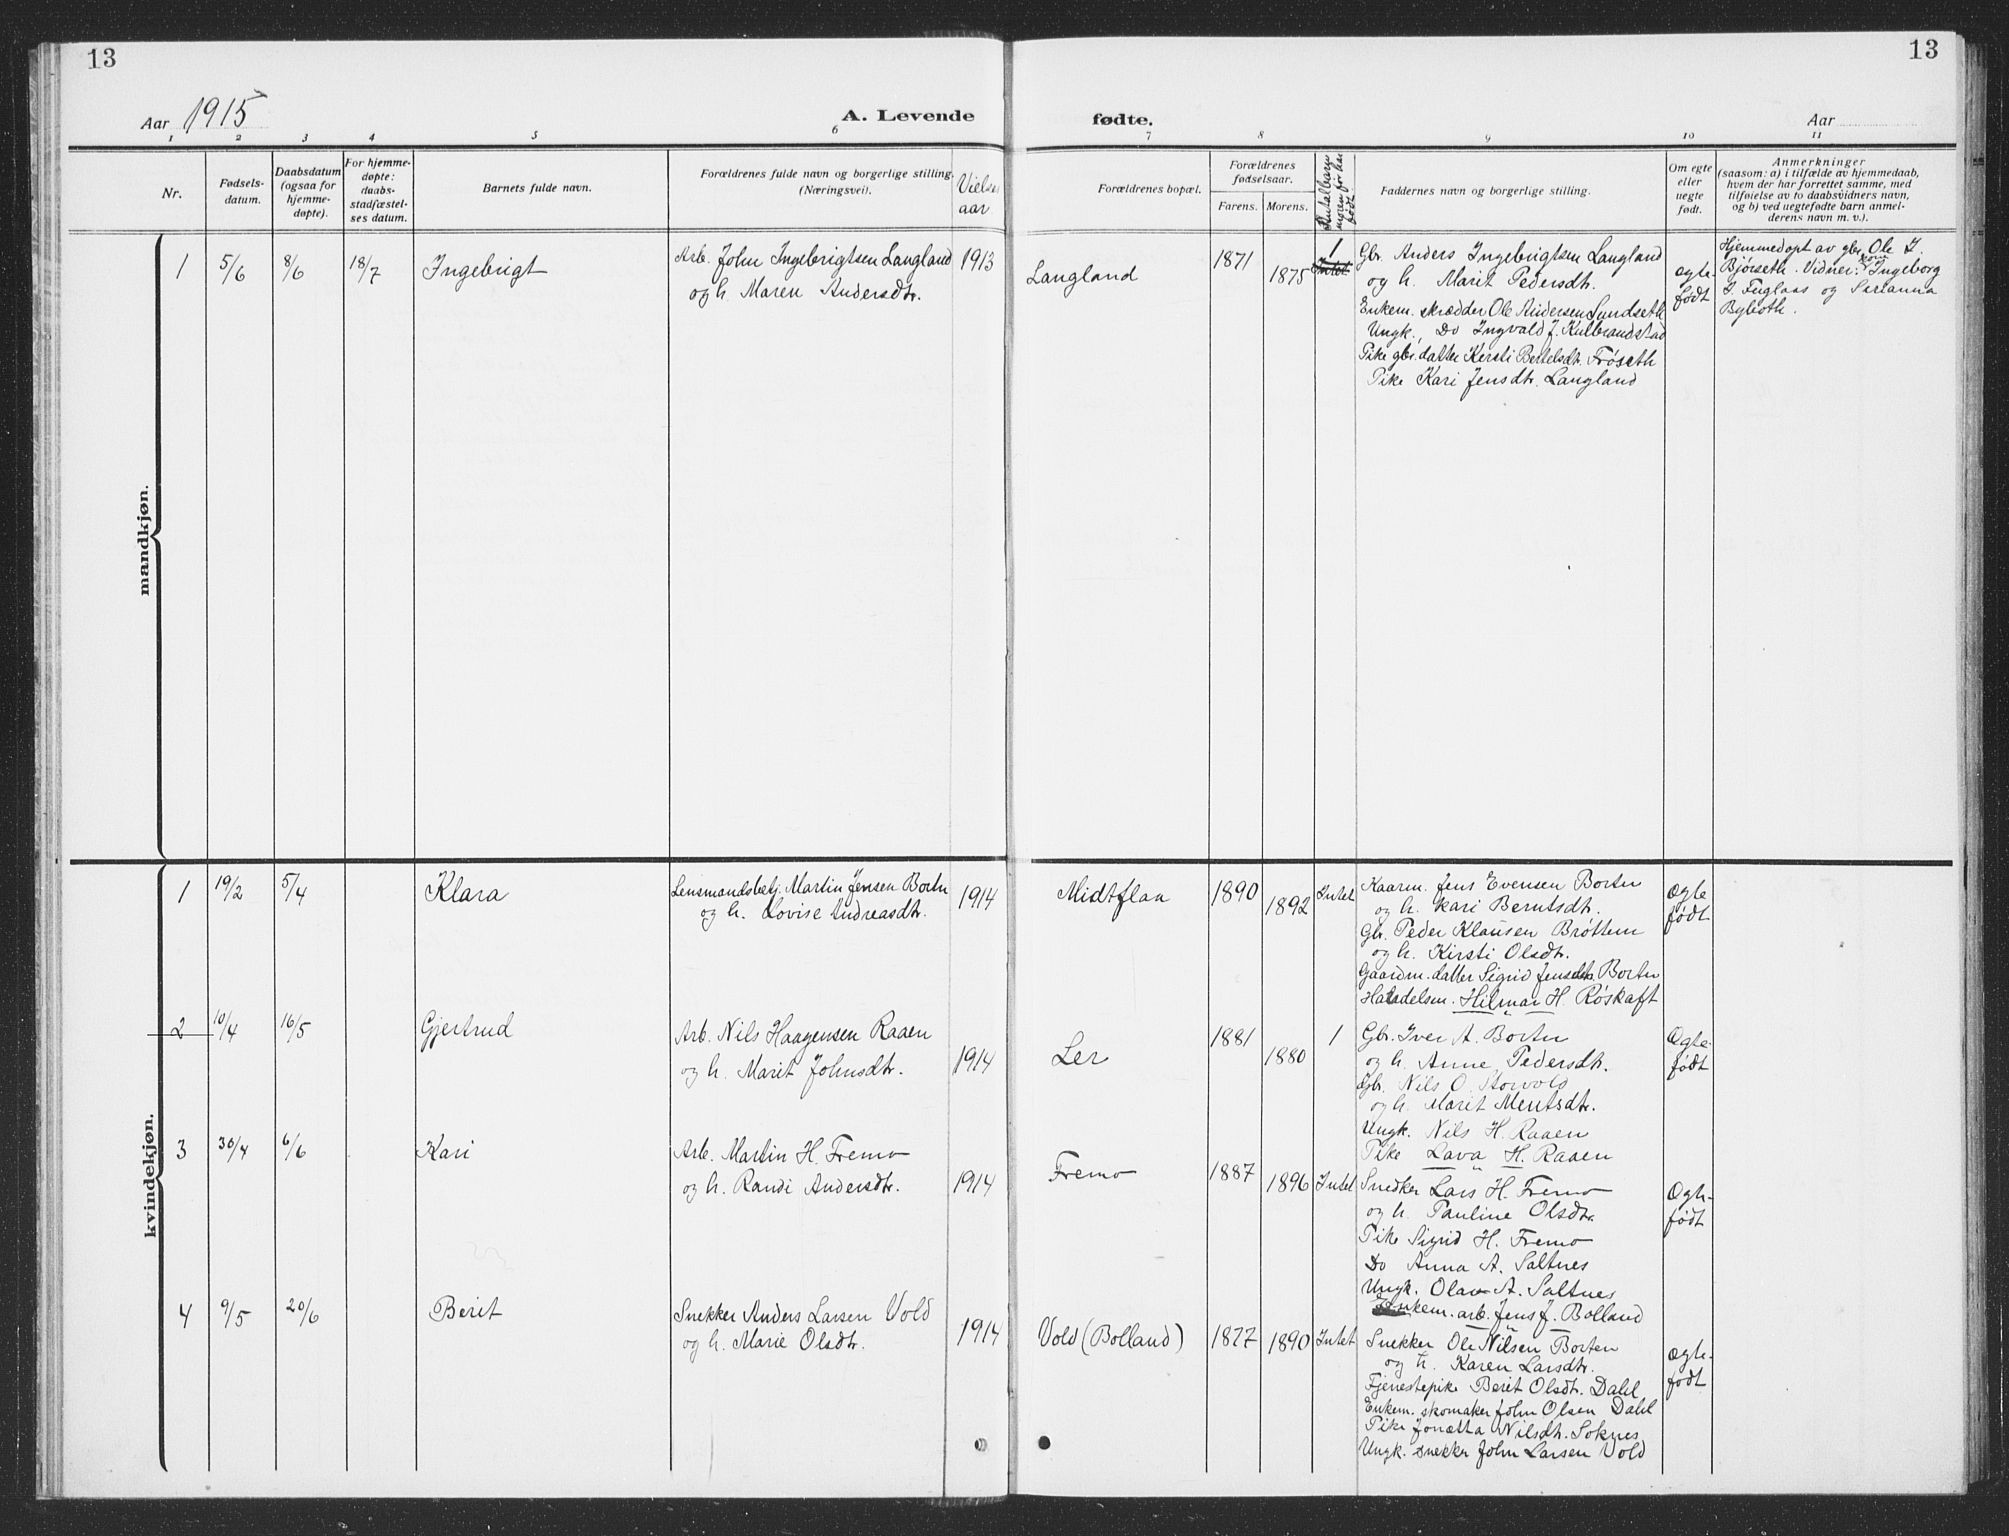 13
13
Aar 1915
A. Levende
fødte.
Aar
1 2 3 4 5 6 7 8 9 10 11
Nr.
Fødsels-
datum.
Daabsdatum
(ogsaa for
hjemme-
døpte).
For hjemme-
døpte:
daabs-
stadfæstel-
ses datum.
Barnets fulde navn.
Forældrenes fulde navn og borgerlige stilling.
(Næringsvei).
Vielses
aar
Forældrenes bopæl.
Forældrenes
fødselsaar.
Farens. Morens.
Antal barn
moren før har
født
Faddernes navn og borgerlige stilling.
Om egte
eller
uegte
født.
Anmerkninger
(saasom: a) i tilfælde av hjemmedaab,
hvem der har forrettet samme, med
tilføielse av to daabsvidners navn,
og b) ved uegtefødte barn anmel-
derens navn m. v.).
mandkjøn.
1
5/6
8/6
18/7
Ingebrigt
Arb. John Ingebrigtsen Langland
og h. Maren Andersdtr.
1913
Langland
1871
1875
1
Intet
Gbr. Anders Ingebrigtsen Langland
og h. Marit Pedersdtr.
Enkem. skrædder Ole Andersen Sundseth
Ungk., Do Ingvald J. Kulbrandstad
Pike gbr. datter Kersti Bertelsdtr. Frøseth
Pike Kari Jensdtr. Langland
egte-
født
Hjemmedøpt av gbr. Ole I.
Bjørseth. Vidner: kone Ingeborg
J. Fuglaas og Sarianna
Byboth.
kvindekjøn.
1
19/2
5/4
Klara
Lensmandsbetj. Martin Jensen Borten
og h. Lovise Andreasdtr.
1914
Midtflaa
1890
1892
Intet
Kaarm. Jens Evensen Borten
og h. Kari Berntsdtr.
Gbr. Peder Klausen Brøttem
og h. Kirsti Olsdtr.
Gaardm. datter Sigrid Jensdtr. Borten
Handelsm. Hilmar H. Røskaft
Ægte
født
2
10/4
16/5
Gjertrud
Arb. Nils Haagensen Raaen
og h. Marit Johnsdtr.
1914
Ler
1881
1880
1
Gbr. Iver A. Borten
og h. Anne Pedersdtr.
Gbr. Nils O. Storvold
og h. Marit Mentsdtr.
Ungk. Nils H. Raaen
Pike Lava H. Raaen
Ægte-
født
3
30/4
6/6
Kari
Arb. Martin H. Fremo
og h. Randi Andersdtr.
1914
Fremo
1887
1896
Intet
Snedker Lars H. Fremo
og h. Pauline Olsdtr.
Pike Sigrid H. Fremo
Do Anna A. Saltnes
Ungk. Olav A. Saltnes
Enkem. arb. Jens J. Bolland
Ægte-
født
4
9/5
20/6
Berit
Snekker Anders Larsen Vold
og h. Marie Olsdtr.
1914
Vold (Bolland)
1877
1890
Intet
Snekker Ole Nilsen Borten
og h. Karen Larsdtr.
Tjenestepike Berit Olsdtr. Dahl
Enkem. skomaker John Olsen Dahl
Pike Jonetta Nilsdtr. Soknes
Ungk. snekker John Larsen Vold
ægte-
født